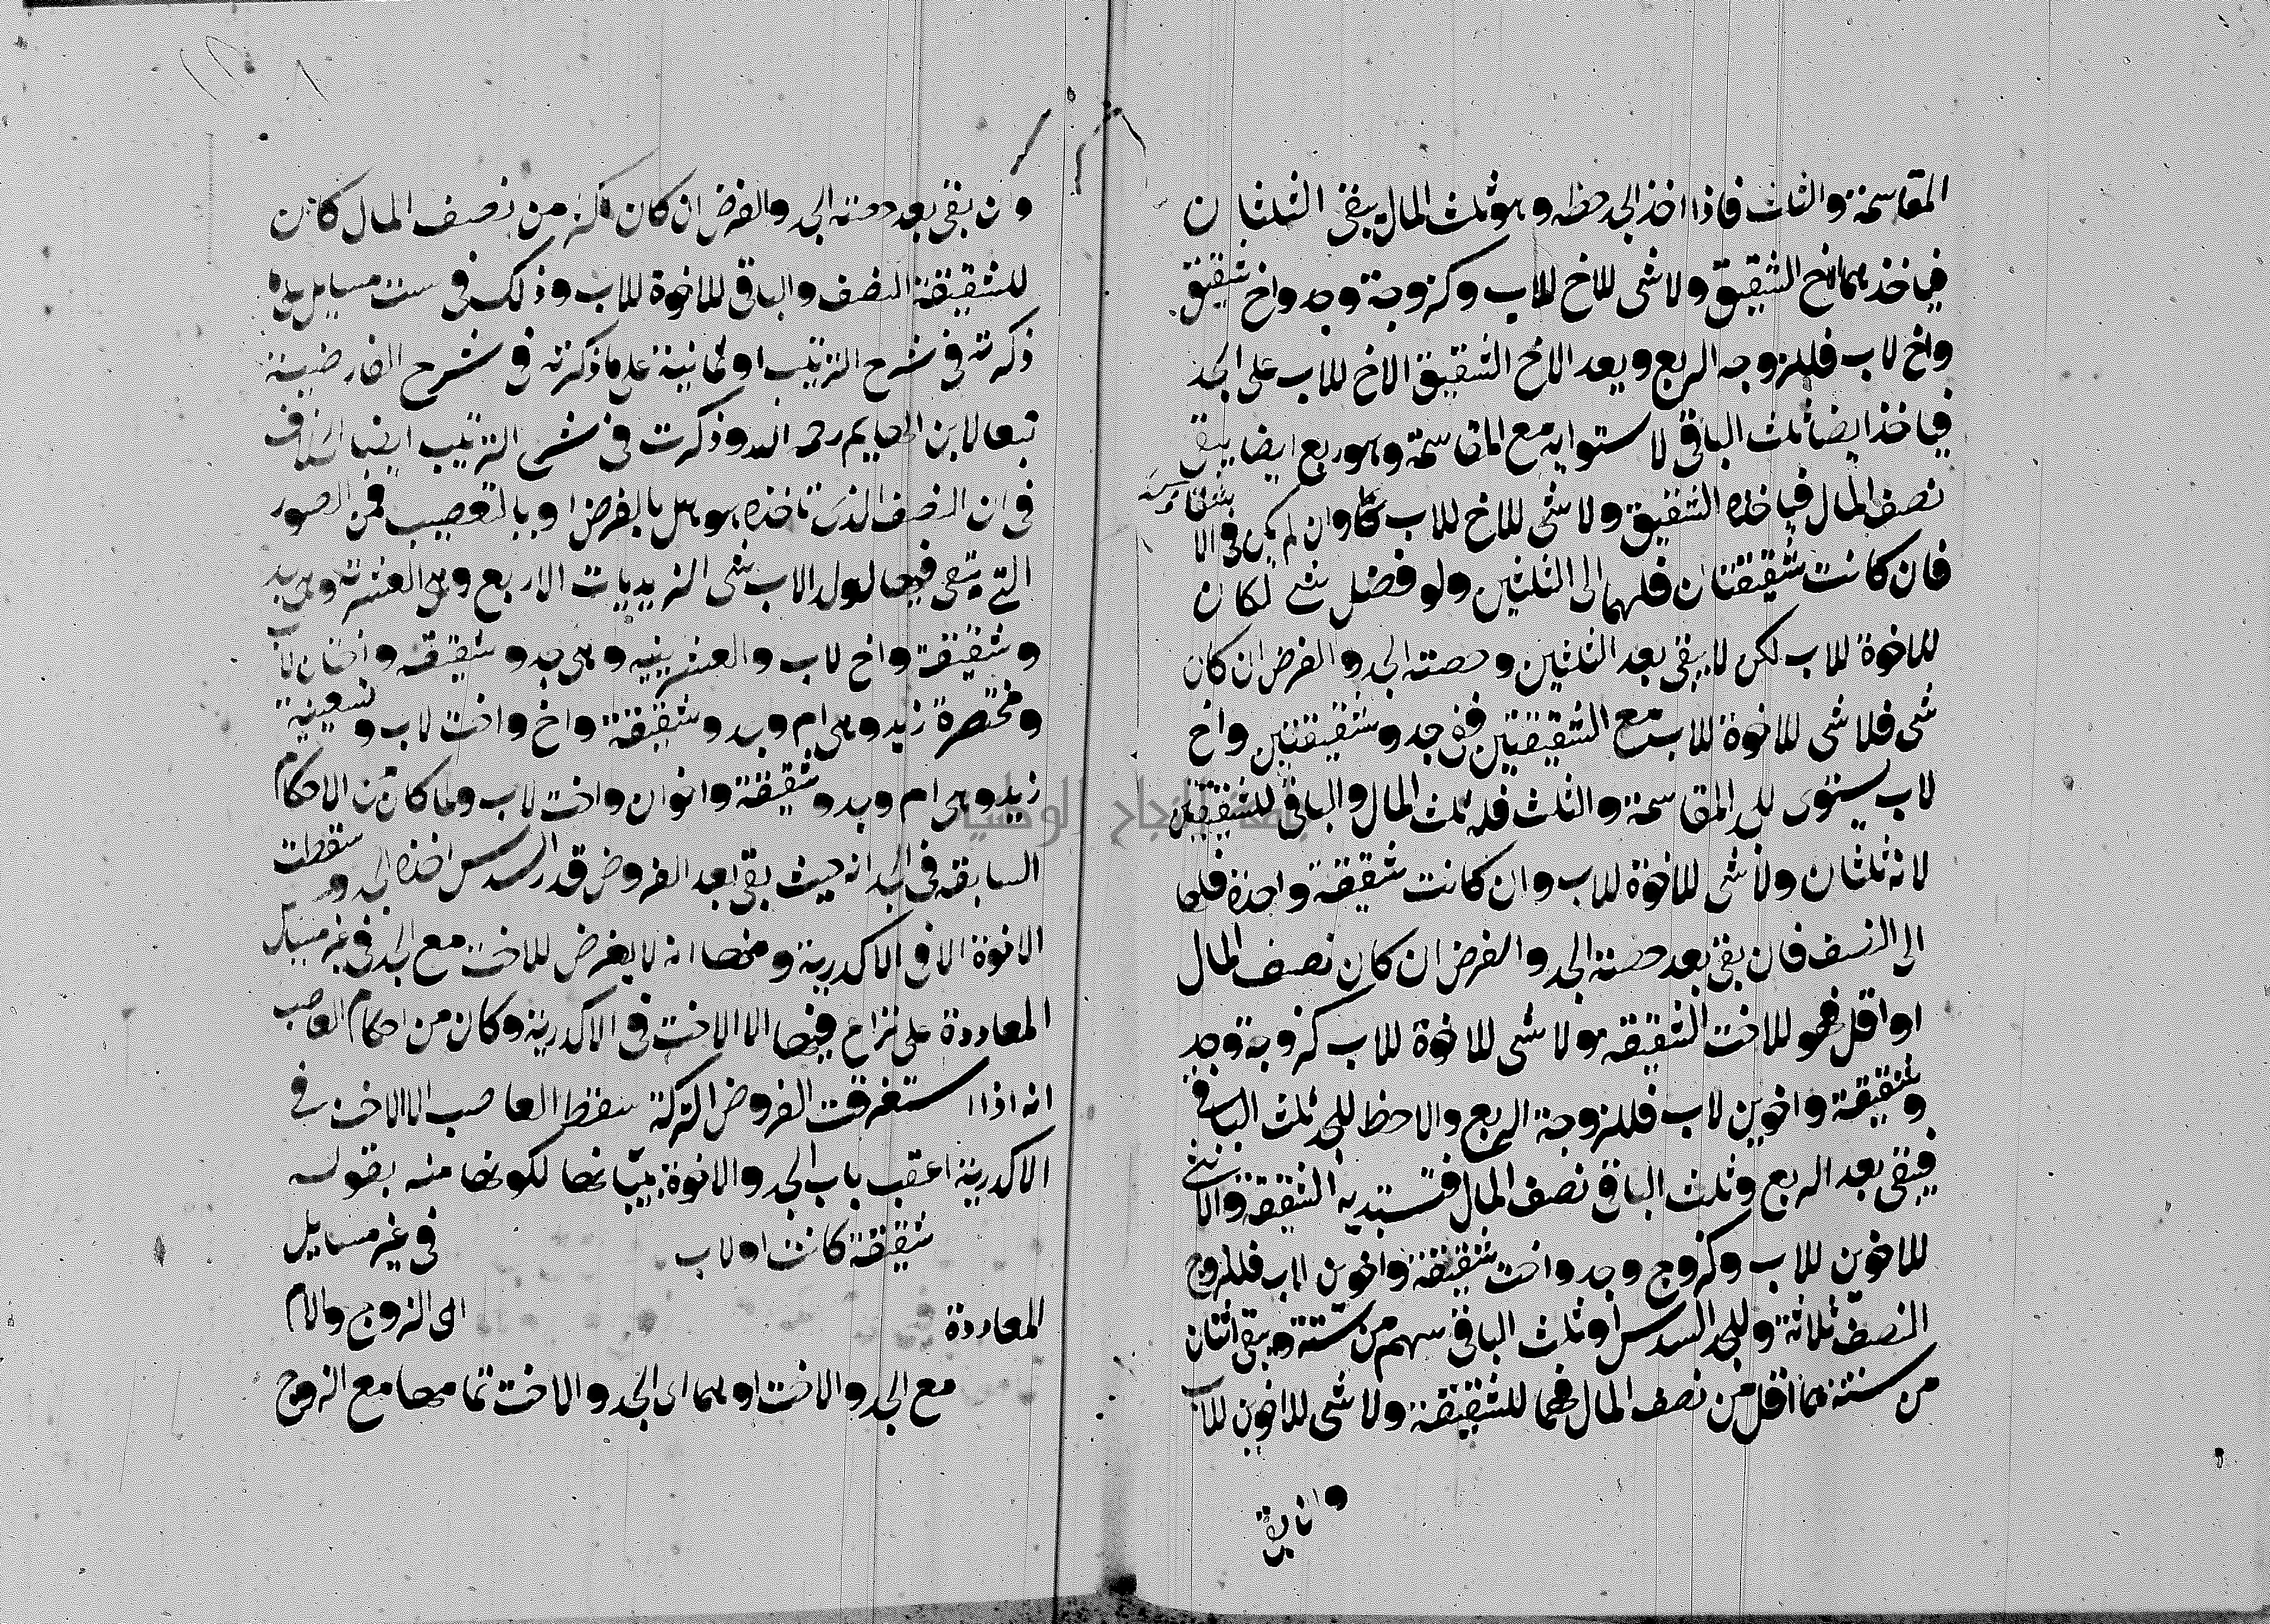 المقاسمة والثلث فاذا اخذ الجد حظه وهو ثلث المال يبقى الثلثان
فياخذهما الاخ الشقيق ولا شى للاخ للاب وكزوجة وجد واخ شقيق
واخ لاب فللزوجه الربع ويعد الاخ الشقيق الاخ للاب على الجد
فياخذ ايضا ثلث الباقى لاستوايه مع المقاسمة وهو ربع ايضا يبقى
نصف المال فياخذه الشقيق ولا شى للاخ للاب وان لم يكن فى الا
شقاء ذكر
فان كانت شقيقتان فلهما الى الثلثين ولو فضل شى لكان
للاخوة للاب لكن لا يبقى بعد الثلثين وحصته الجد والفرض ان كان
شى فلا شى للاخوة للاب مع الشقيقتين ففى جد وشقيقتين واخ
لاب يستوى للجد المقاسمة والثلث فله ثلث المال والباقى للشقيقتين
لانه ثلثان ولا شى للاخوة للاب وان كانت شقيقة واحدة فلها
الى النصف فان بقى بعد حصته الجد والفرض ان كان نصف المال
او اقل فهو للاخت الشقيقه ولا شى للاخوة للاب كزوجة وجد
وشقيقة واخوين لاب فللزوجة الربع والاحظ للجد ثلث الباقى
فيبقى بعد الربع وثلث الباقى نصف المال فتستبد به الشقيقة ولا شى
للاخوين للاب وكزوج وجد واخت شقيقة واخوين لاب فللزوج
النصف ثلاثة وللجد السدس او ثلث الباقى سهم من ستة ويبقى اثنان
من ستة هما اقل من نصف المال فهما للشقيقة ولا شى للاخوين للاب
وان بقى بعد حصته الجد والفرض ان كان اكثر من نصف المال كان
للشقيقة النصف والباقى للاخوة للاب وذلك فى ست مسايل على ما
ذكرته فى شرح الترتيب او ثمانية على ما ذكرته فى شرح الفارضية
تبعا لابن الهايم رحمه الله وذكرت فى شرح الترتيب ايضا الخلاف
فى ان النصف الذى تاخذه هو هل بالفرض او بالتعصيب فمن الصور
التى يبقى فيها لولد الاب شى الزيديات الاربع وهى العشرية وهى جد
وشقيقة واخ لاب والعشرينيه وهى جد وشقيقه واختان لاب
ومختصرة زيد وهى ام وجد وشقيقة واخ واخت لاب وتسعينية
زيد وهى ام وجد وشقيقة واخوان واخت لاب ولما كان من الاحكام
السابقه فى الجد انه حيث بقى بعد الفروض قدر السدس اخذه الجد وسقطت
الاخوة الا فى الاكدرية ومنها انه لا يفرض للاخت مع الجد فى غير مسايل
المعاددة على نزاع فيها الا الاخت فى الاكدرية وكان من احكام العاصب
انه اذا استغرقت الفروض التركة سقط العاصب الا الاخت فى
الاكدرية اعقب باب الجد والاخوة ببيانها لكونها منه بقوله
شقيقة كانت او لاب فى غير مسايل
المعاددة اى الزوج والام
مع الجد والاخت او هما اى الجد والاخت تمامها مع الزوج